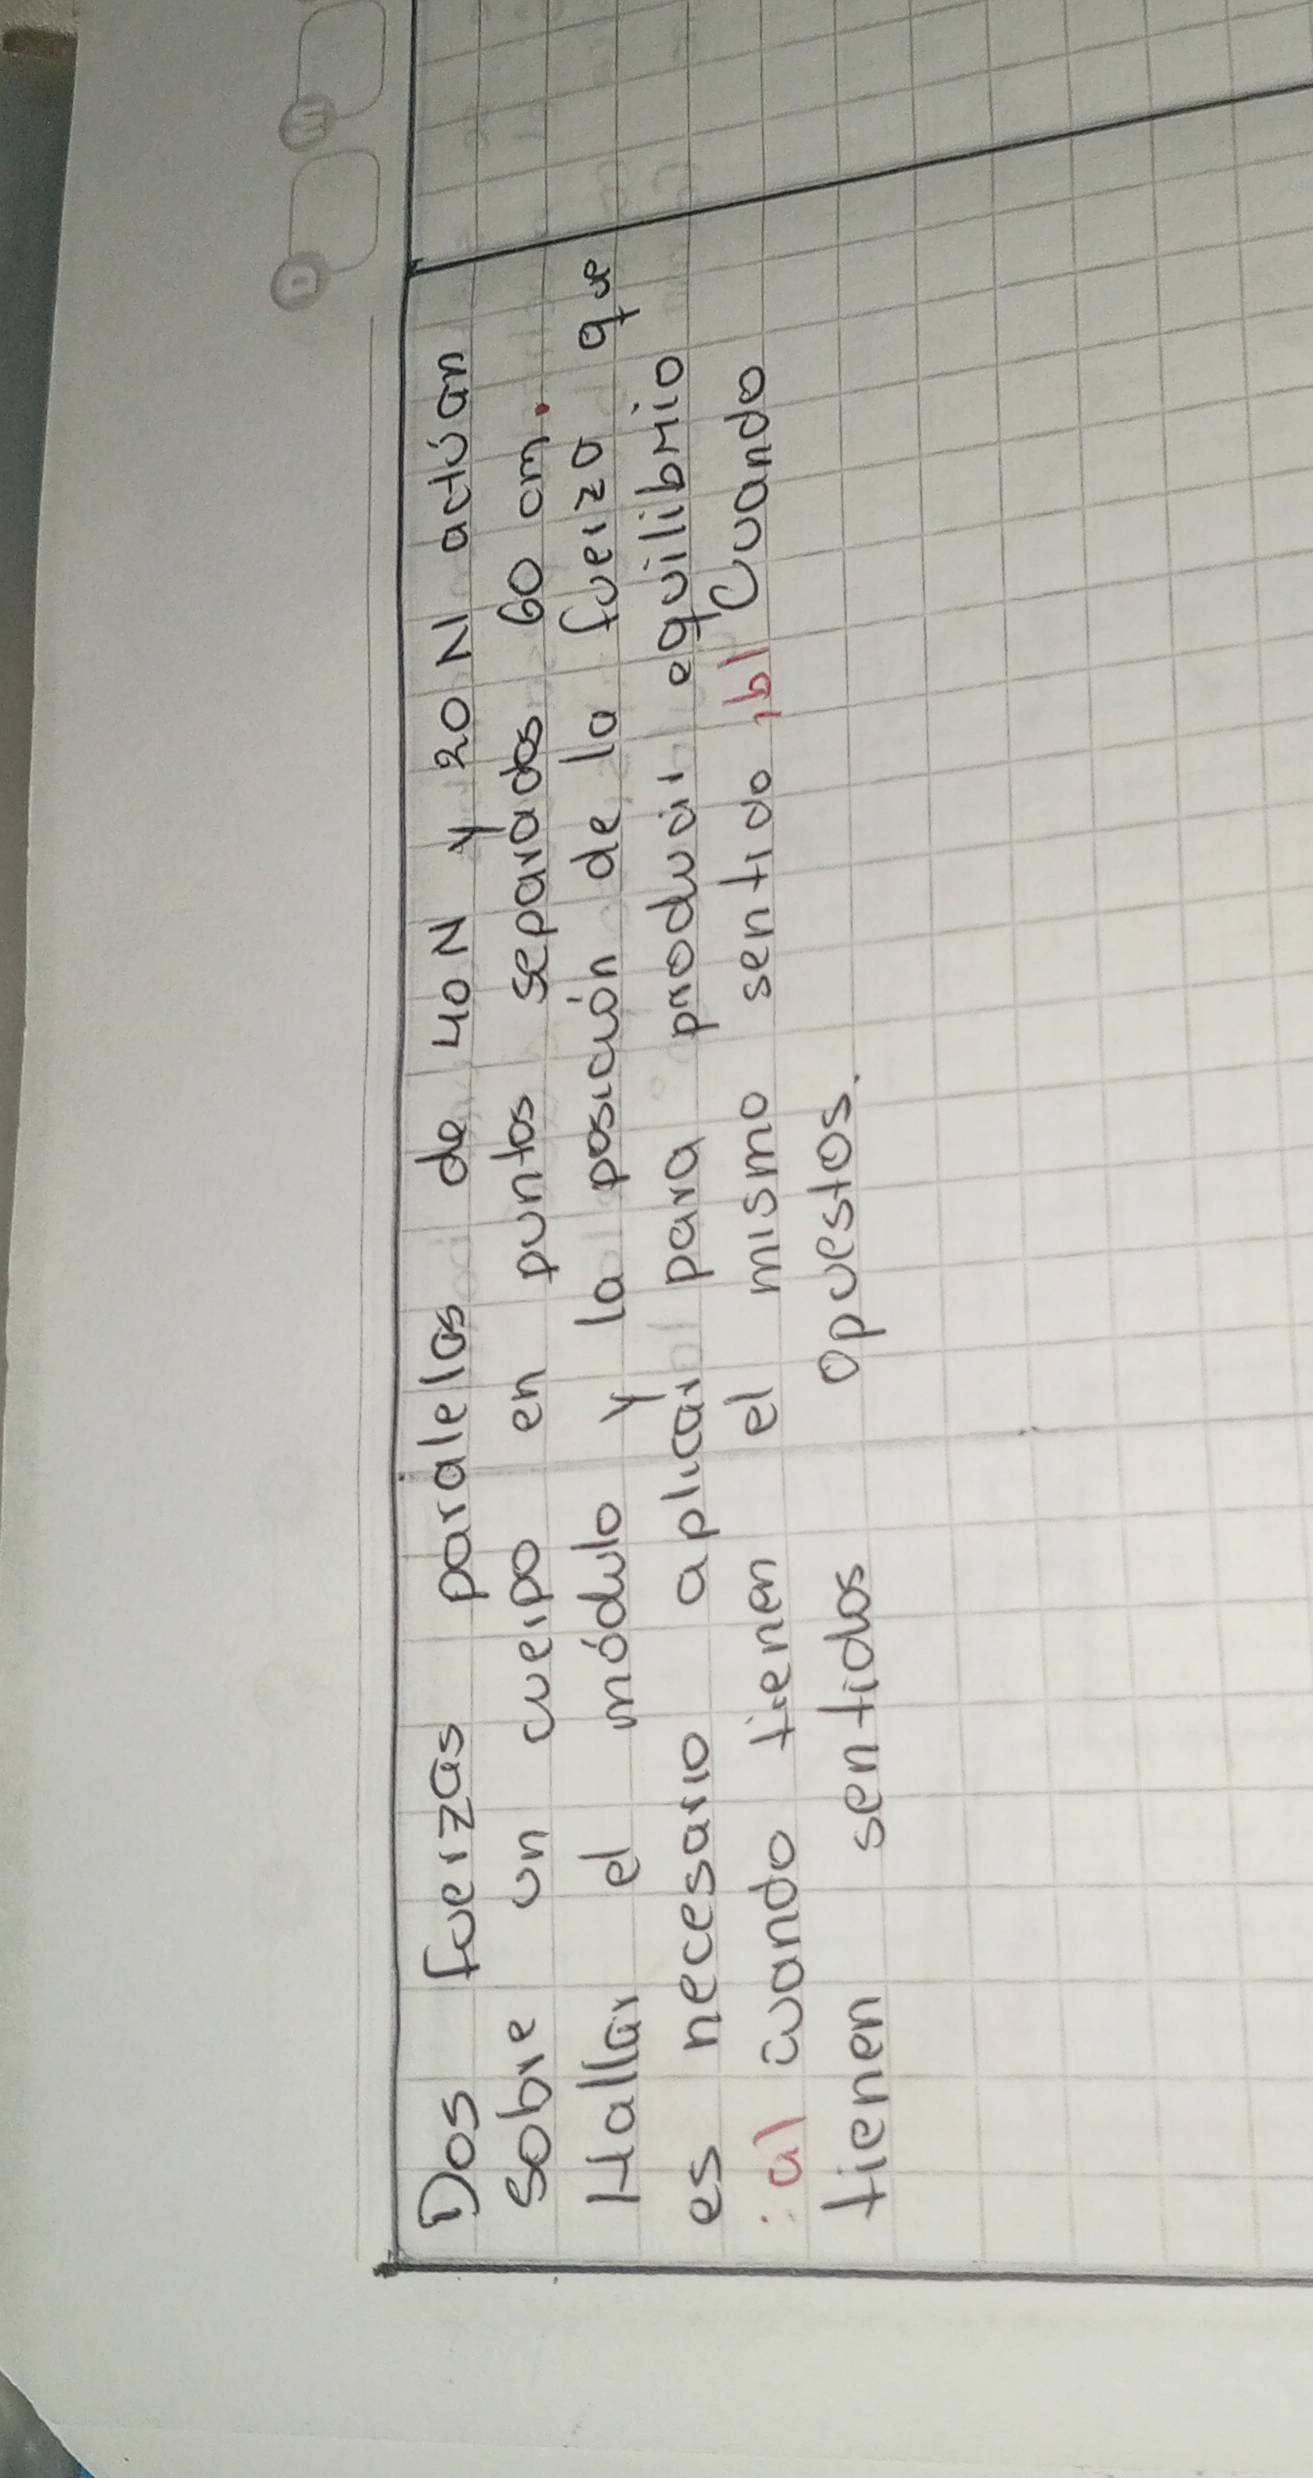 Dos fuerzas paralelas de 40N y 20N actúan
sobre un cuerpo en puntos separados 60 cm.
Hallar el módulo y la posición de la fuerza que
es necesario aplicar para producir equilibrio
:a) cuando tienen el mismo sentido ,b) Cuando
tienen sentidos opuestos.
D
M